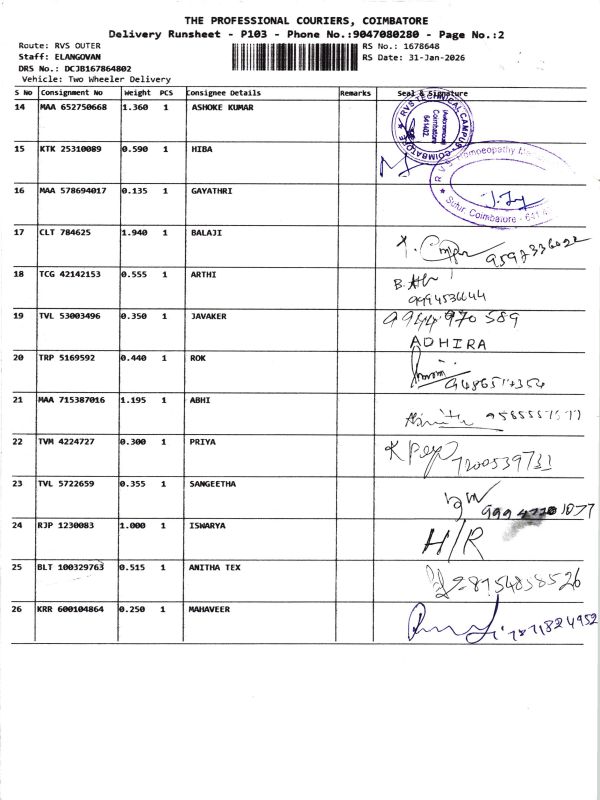 THE PROFESSIONAL COURIERS, COIMBATORE
Delivery Runsheet - P103 - Phone No.:9047080280 - Page No.:2
Route: RVS OUTER RS No.: 1678648
Staff: ELANGOVAN RS Date: 31-Jan-2026
DRS No.: DCJB167864802
Vehicle: Two Wheeler Delivery
S No Consignment No Weight PCS Consignee Details Remarks Seal & Signature
14 MAA 652750668 1.360 1 ASHOKE KUMAR
15 KTK 25310089 0.590 1 HIBA
16 MAA 578694017 0.135 1 GAYATHRI
17 CLT 784625 1.940 1 BALAJI
18 TCG 42142153 0.555 1 ARTHI
19 TVL 53003496 0.350 1 JAVAKER 9944 970 589
ADHIRA
20 TRP 5169592 0.440 1 ROK
21 MAA 715387016 1.195 1 ABHI
22 TVM 4224727 0.300 1 PRIYA 7200539733
23 TVL 5722659 0.355 1 SANGEETHA
24 RJP 1230083 1.000 1 ISWARYA H/R
25 BLT 100329763 0.515 1 ANITHA TEX
26 KRR 600104864 0.250 1 MAHAVEER